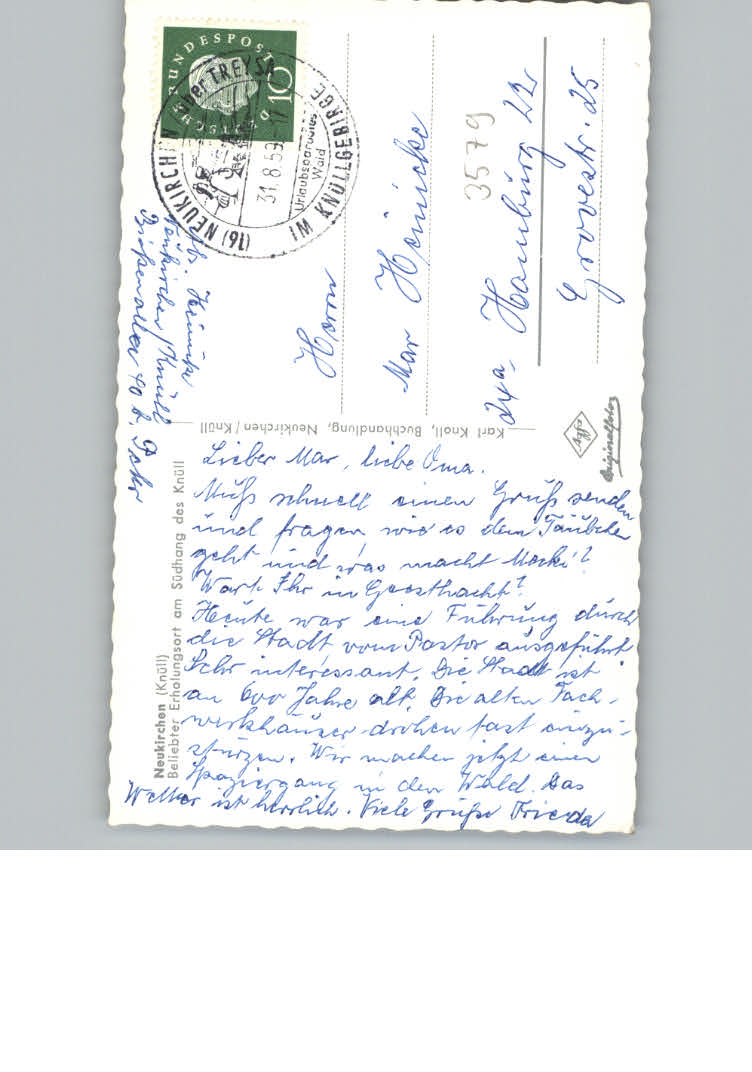 Neukirchen (Knüll)
Beliebter Erholungsort am Südhang des Knüll
Lieber Max, liebe Oma.
Muß schnell einen Gruß senden
und fragen, wie es dem Täubchen
geht und was macht Mocki?
Wart Ihr in Geesthacht?
Heute war eine Führung durch
die Stadt vom Pastor ausgeführt
Sehr interessant. Die Stadt ist
an 600 Jahre alt. Die alten Fach-
werkhäuser drohen fast einzu-
stürzen. Wir machen jetzt einen
Spaziergang in den Wald. Das
Wetter ist herrlich. Viele Grüße Frieda
Karl Knoll, Buchhandlung, Neukirchen/Knüll
Agfa
Originalfoto
Abs. Heinicke
Neukirchen/Knüll
40 b.
DEUTSCHE BUNDESPOST
10
(16) NEUKIRCHEN über TREYSA
IM KNÜLLGEBIRGE
31.8.59
17
Urlaubsparadies
Wald
Herrn
Max Heinicke
24a Hamburg 22
Grovestr. 25
3579